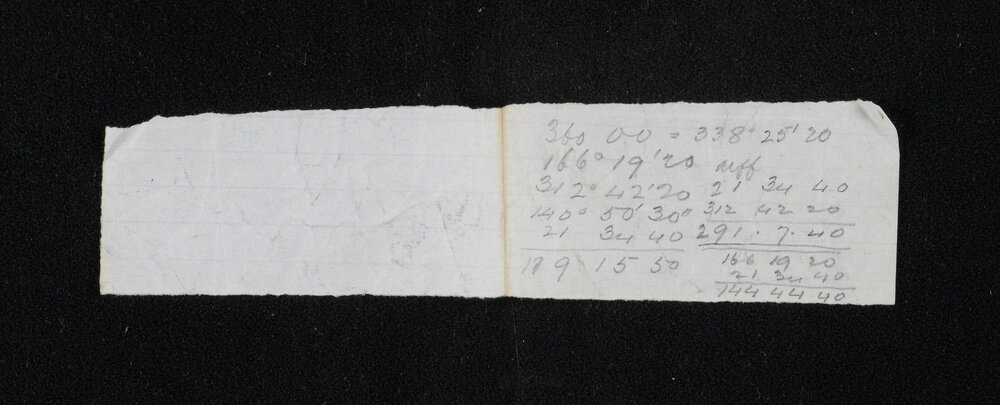 360 00 = 338° 25' 20
166° 19' 20 diff
312° 42' 20 21 34 40
140° 50' 30" 312 42 20
21 34 40 291 . 7 . 40
119 15 50 166 19 20
21 34 40
144 44 40